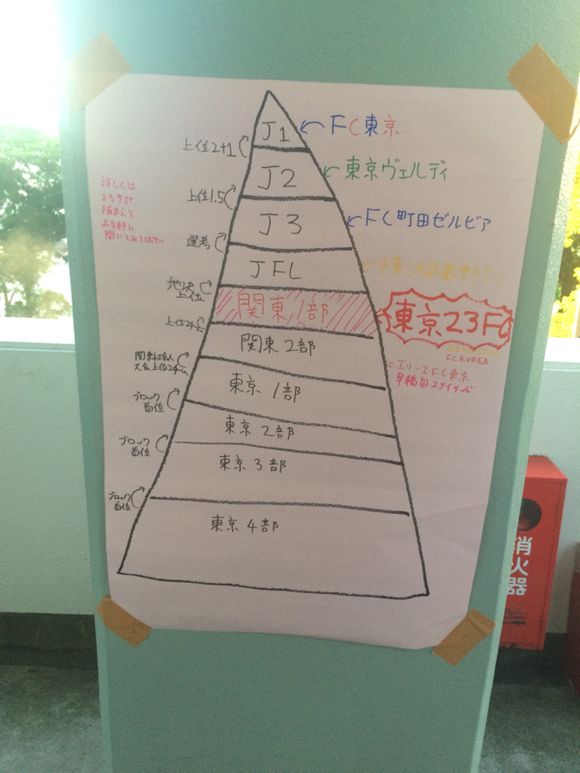 J1
FC東京
上位2+1
J2
東京ヴェルディ
上位1.5
J3
FC町田ゼルビア
選考
JFL
地決
上位
関東1部
東京23FC
上位2チーム
関東2部
エリースFC東京
早稲田ユナイテッド
関東社会人
大会上位2チーム
東京1部
ブロック
首位
東京2部
ブロック
首位
東京3部
ブロック
首位
東京4部
詳しくは
お気軽に
聞いてみてください
消火器